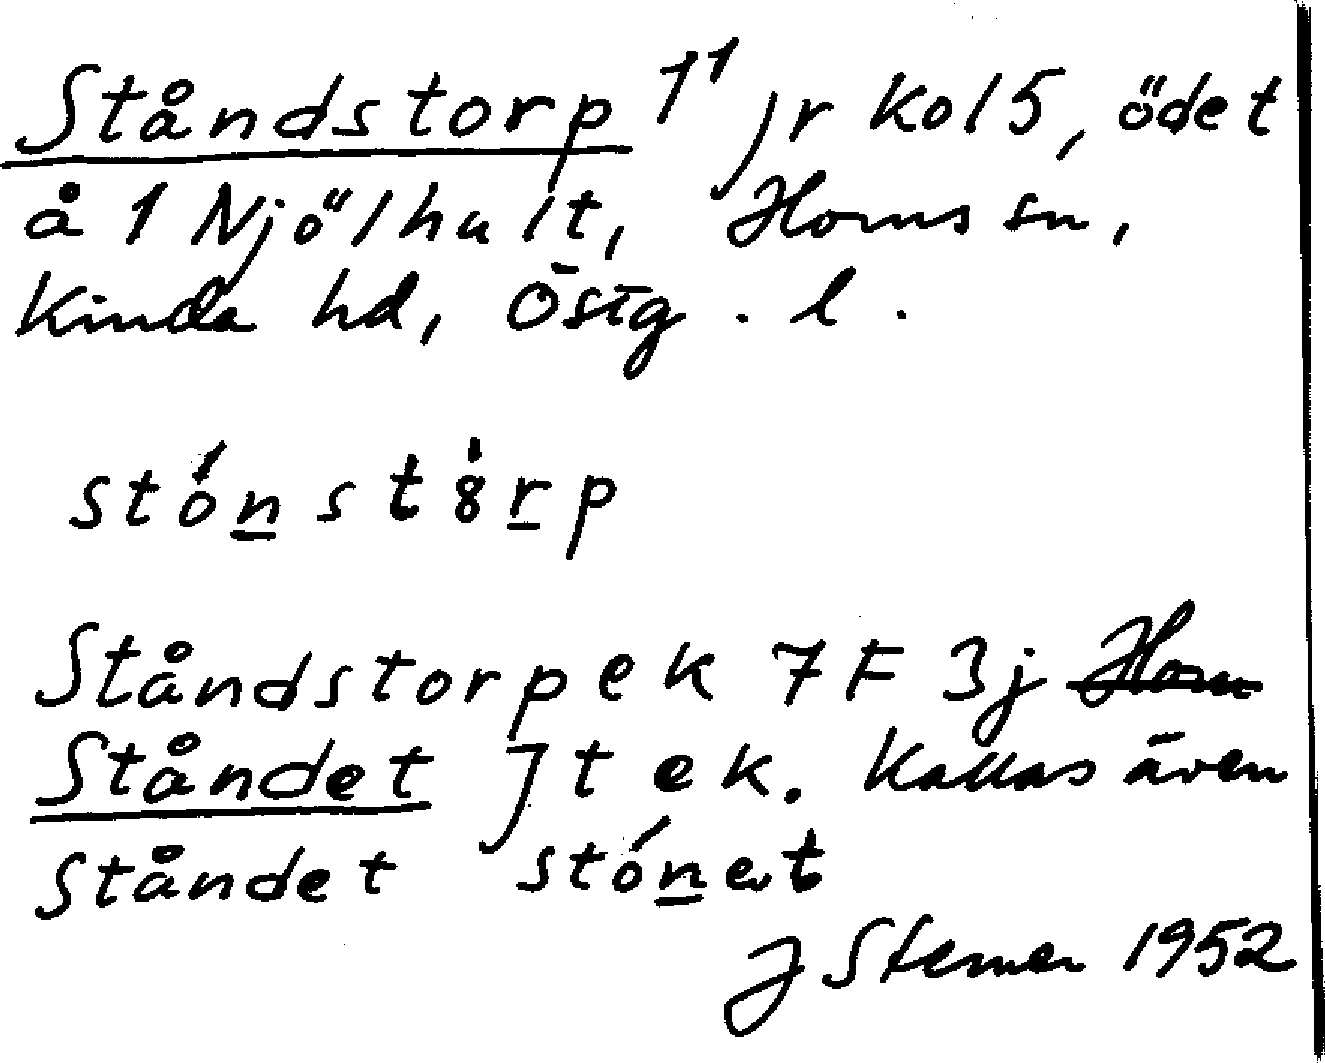 Ståndstorp 1¹ jr Kol 5, ödet
å 1 Njölhult, Horns sn,
Kinda hd, Östg. l.
stónstȣrp
Ståndstorp ek 7 F 3j Horn
Ståndet J t ek. Kallas även
Ståndet stónet
J Sterner 1952